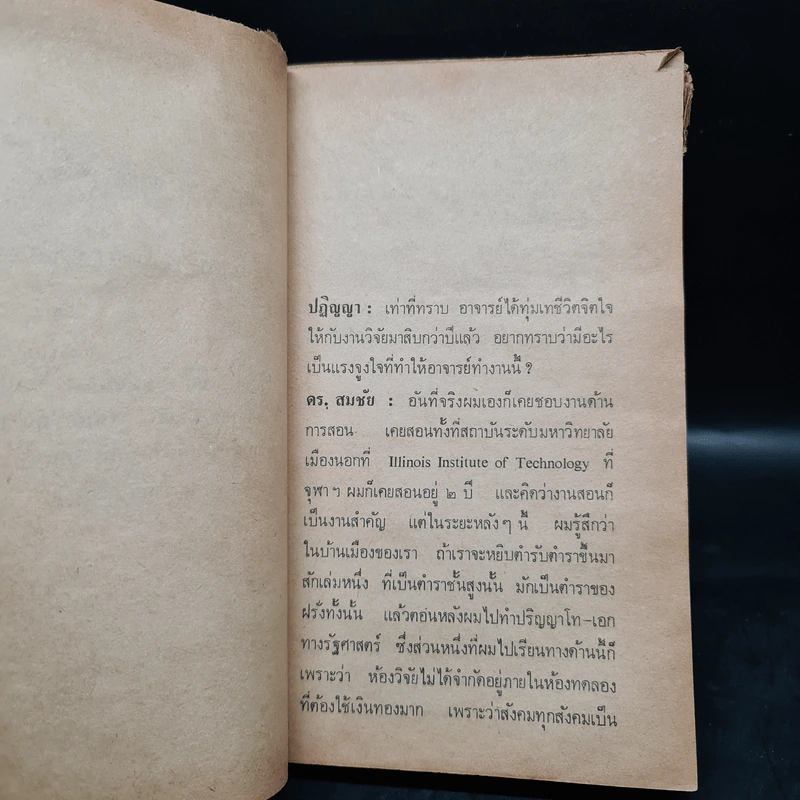 ปฏิญญา : เท่าที่ทราบ อาจารย์ได้ทุ่มเทชีวิตจิตใจ
ให้กับงานวิจัยมาสิบกว่าปีแล้ว อยากทราบว่ามีอะไร
เป็นแรงจูงใจที่ทำให้อาจารย์ทำงานนี้ ?
ดร. สมชัย : อันที่จริงผมเองก็เคยชอบงานด้าน
การสอน เคยสอนทั้งที่สถาบันระดับมหาวิทยาลัย
เมืองนอกที่ Illinois Institute of Technology ที่
จุฬาฯ ผมก็เคยสอนอยู่ ๒ ปี และคิดว่างานสอนก็
เป็นงานสำคัญ แต่ในระยะหลังๆ นี้ ผมรู้สึกว่า
ในบ้านเมืองของเรา ถ้าเราจะหยิบตำรับตำราขึ้นมา
สักเล่มหนึ่ง ที่เป็นตำราชั้นสูงนั้น มักเป็นตำราของ
ฝรั่งทั้งนั้น แล้วตอนหลังผมไปทำปริญญาโท-เอก
ทางรัฐศาสตร์ ซึ่งส่วนหนึ่งที่ผมไปเรียนทางด้านนี้ก็
เพราะว่า ห้องวิจัยไม่ได้จำกัดอยู่ภายในห้องทดลอง
ที่ต้องใช้เงินทองมาก เพราะว่าสังคมทุกสังคมเป็น